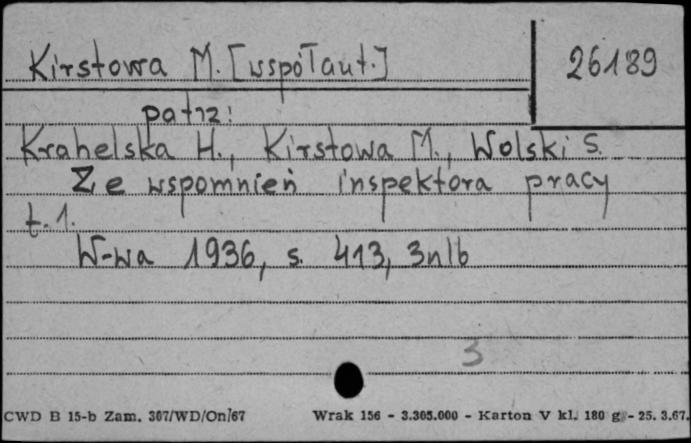 Kirstowa M. [współaut.]
26189
patrz:
Krahelska H., Kirstowa M., Wolski S.
Ze wspomnień inspektora pracy
t. 1.
W-wa 1936, s. 413, 3nlb
3
CWD B 15-b Zam. 307/WD/On/67 Wrak 156 - 3.305.000 - Karton V kl. 180 g - 25. 3.67.